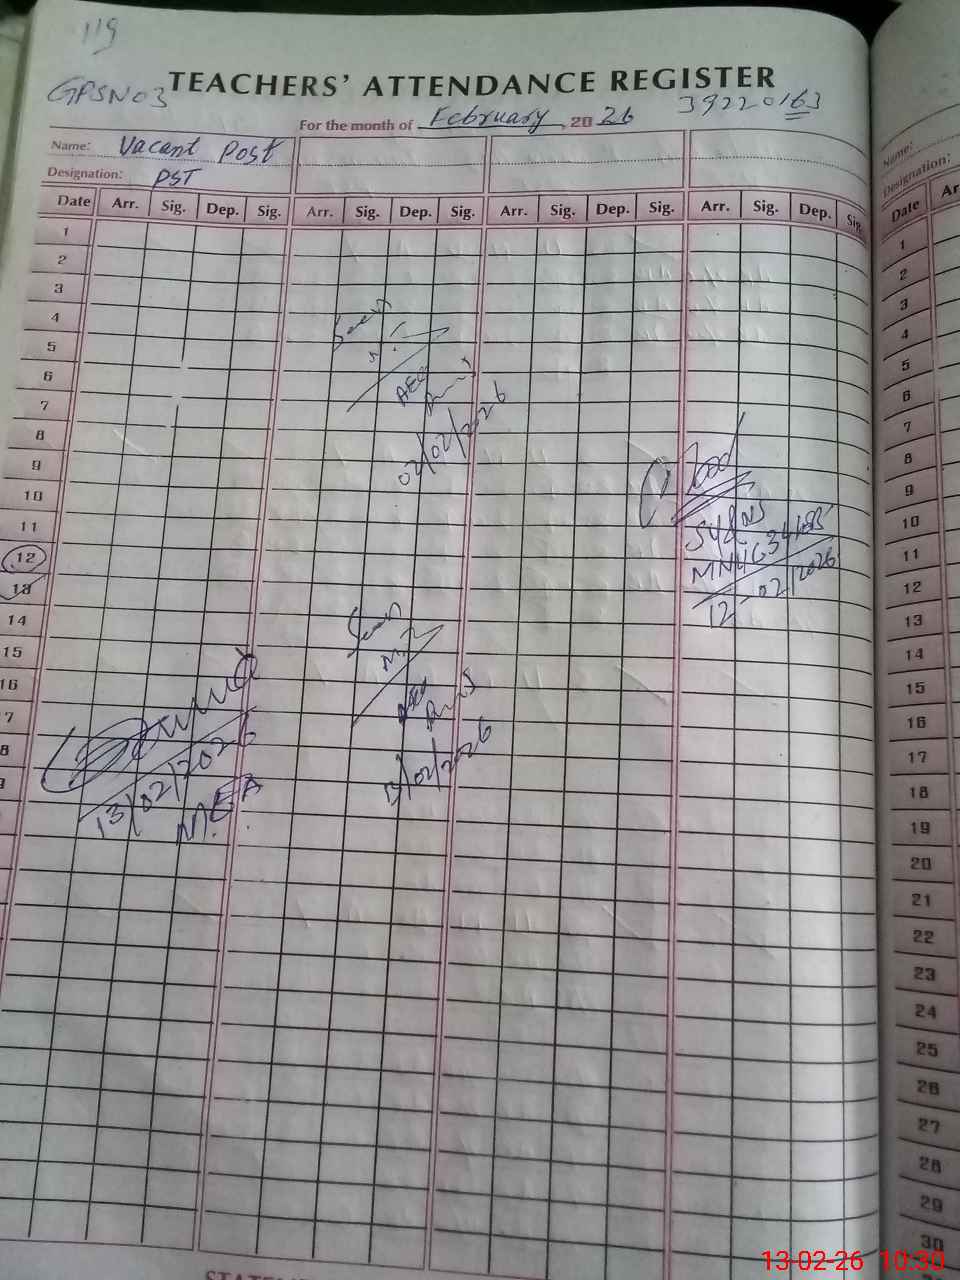 119
GPSNO3
TEACHERS' ATTENDANCE REGISTER
39220163
For the month of February, 2026
Name: Vacant Post
Designation: PST
Date Arr. Sig. Dep. Sig. Arr. Sig. Dep. Sig. Arr. Sig. Dep. Sig. Arr. Sig. Dep. Sig.
1
2
3
4
5
6
7
8
9
10
11
12
13
14
15
16
7
8
9
Seen
AEO
02/02/2026
12-02/2026
Seen
AEO
13/02/2026
13/02/2026
M.E.A
Name:
Designation:
Date Ar
1
2
3
4
5
6
7
8
9
10
11
12
13
14
15
16
17
18
19
20
21
22
23
24
25
26
27
28
29
30
13-02-26 10:30